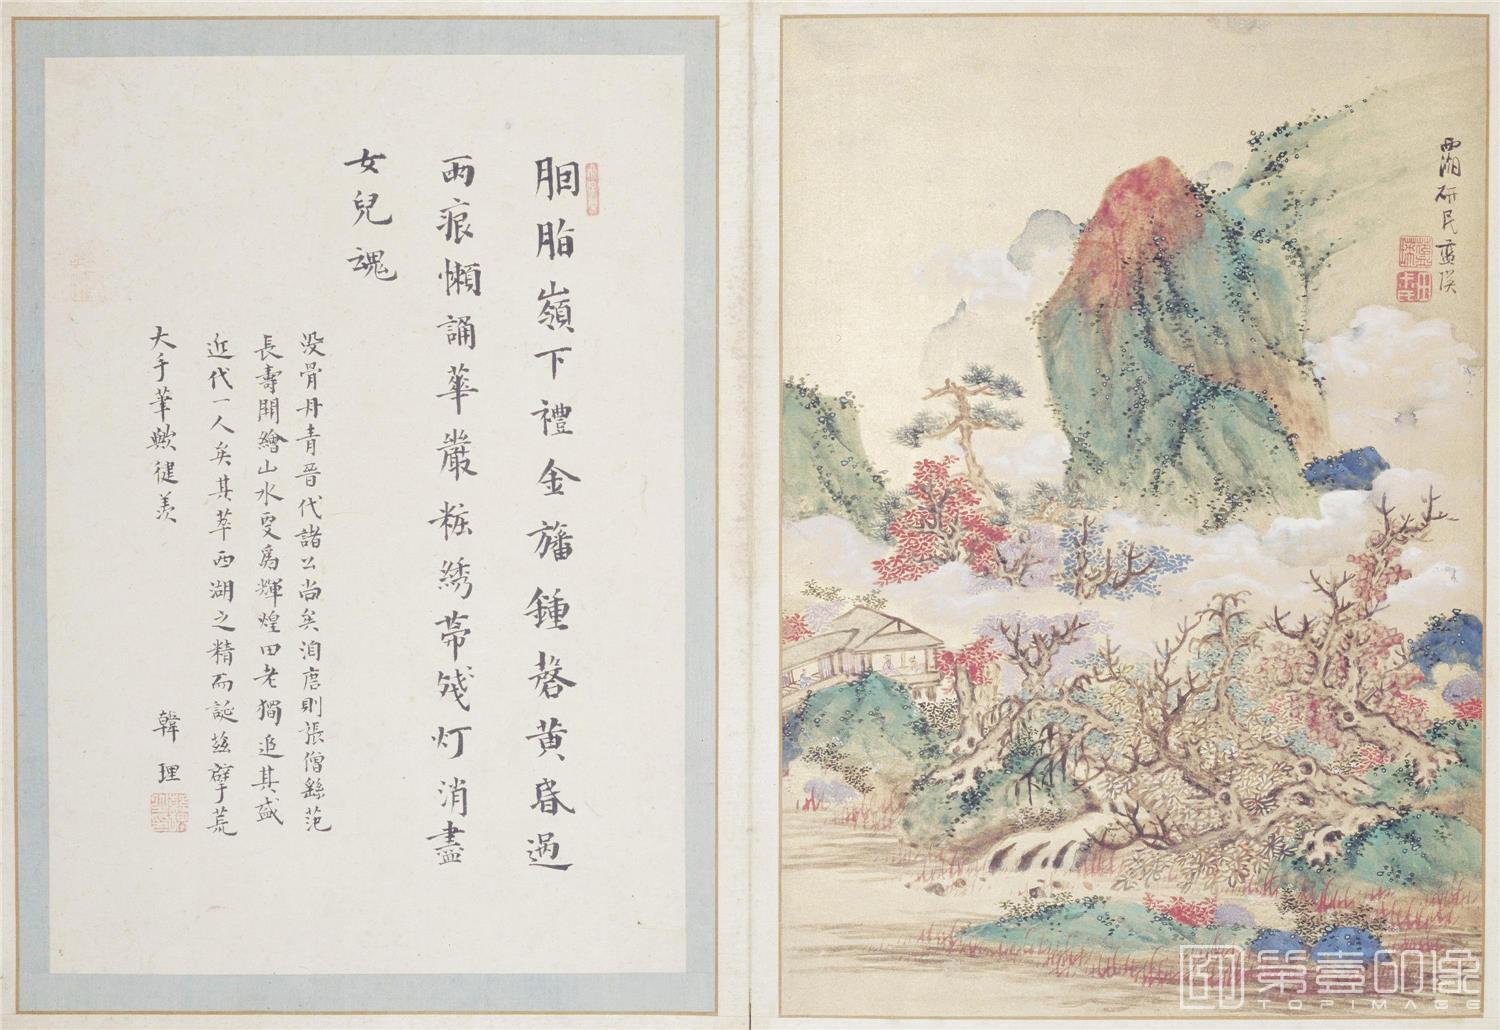 胭脂嶺下禮金旛鍾磬黃昏過
兩痕懶誦華嚴粧綉幕戔灯消盡
女兒魂
没骨丹青晉代諸公尚矣洎唐則張僧繇范
長壽開繪山水更爲輝煌田老獨追其盛
近代一人矣其萃西湖之精而誕茲擘荒
大手筆歟徒羨
韓理
西湖研民藍瑛
第壹印像
TOPIMAGE